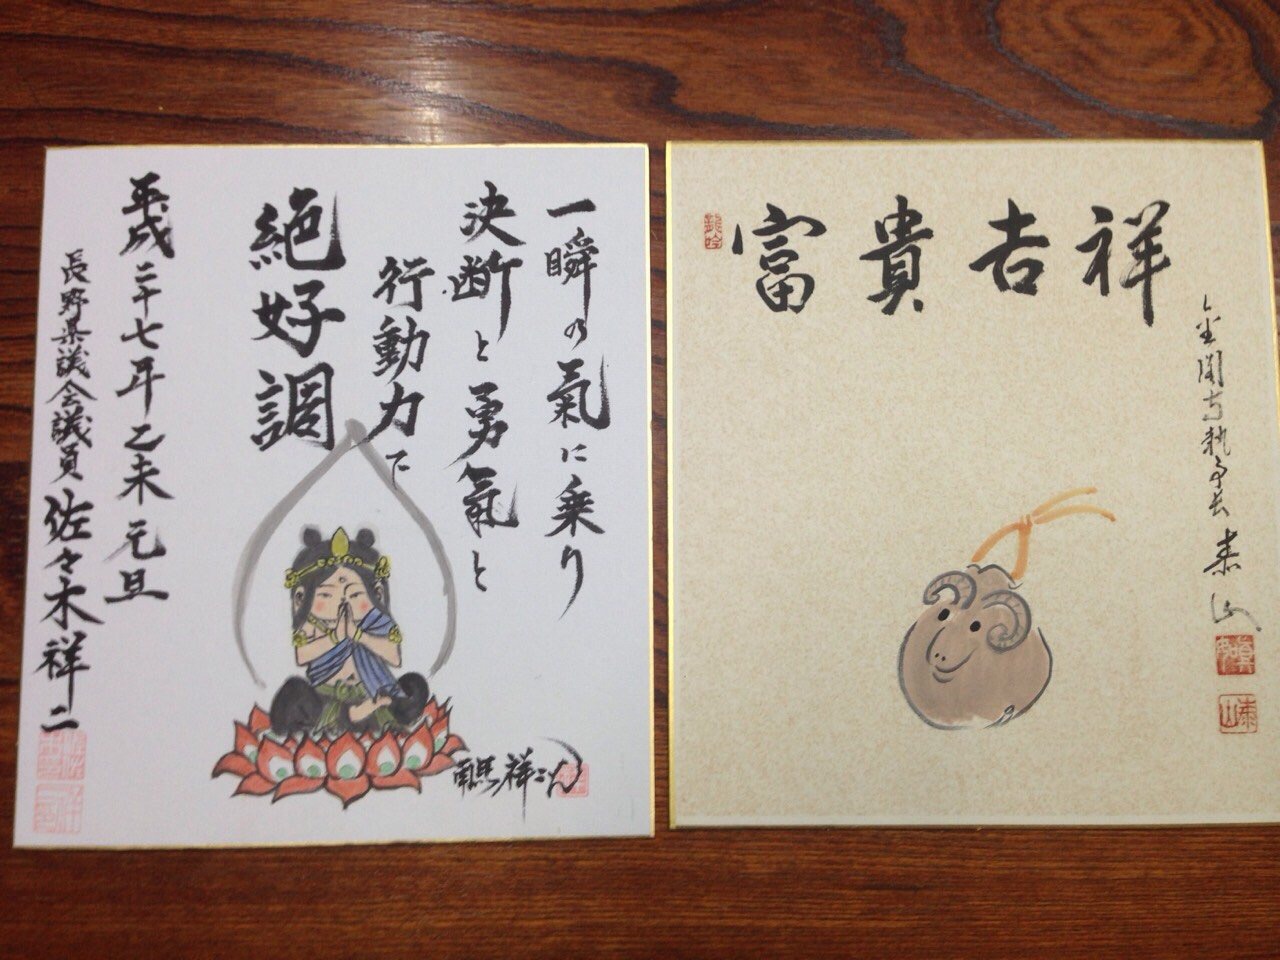 一瞬の氣に乗り
決断と勇氣と
行動力で
絶好調
平成二十七年乙未元旦
長野県議会議員 佐々木祥二
祥吉貴富
金閣寺執事長 泰山